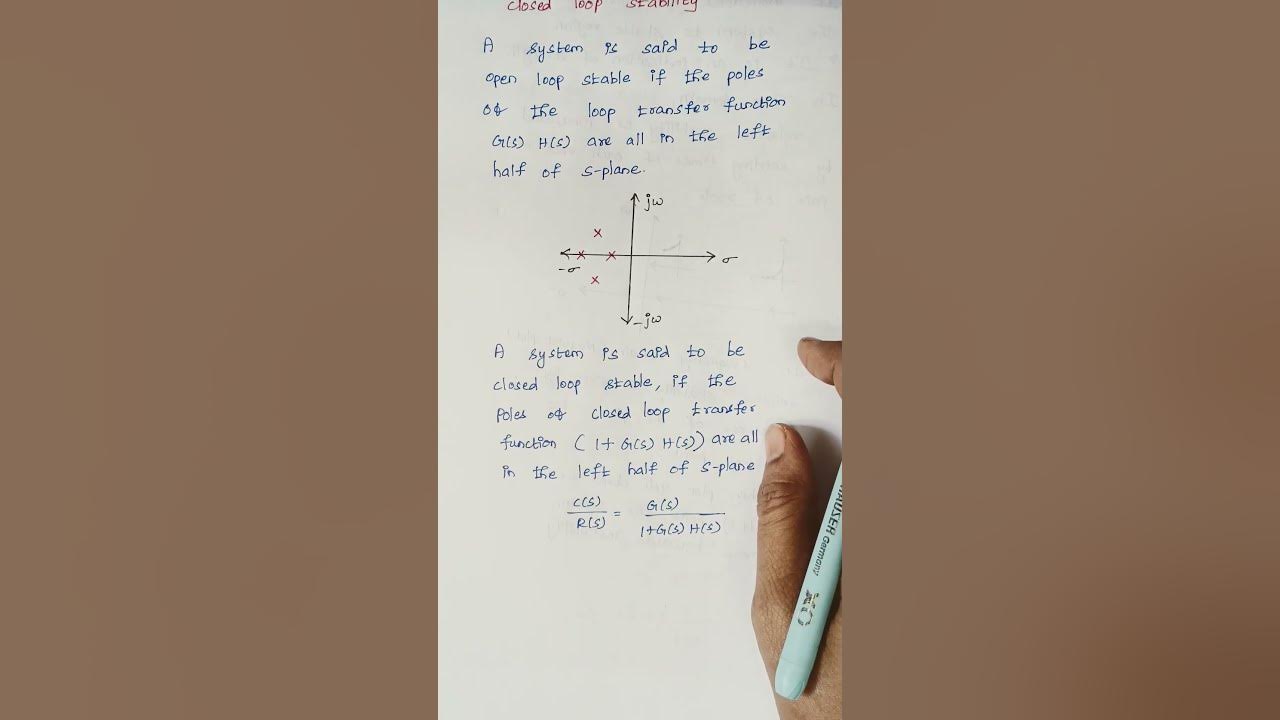 closed loop stability
A system is said to be
open loop stable if the poles
of the loop transfer function
G(s) H(s) are all in the left
half of s-plane.
jω
-σ
σ
-jω
A system is said to be
closed loop stable, if the
poles of closed loop transfer
function (1+ G(s) H(s)) are all
in the left half of s-plane
C(s)/R(s) = G(s)/1+G(s) H(s)
HAUSER Germany
XO